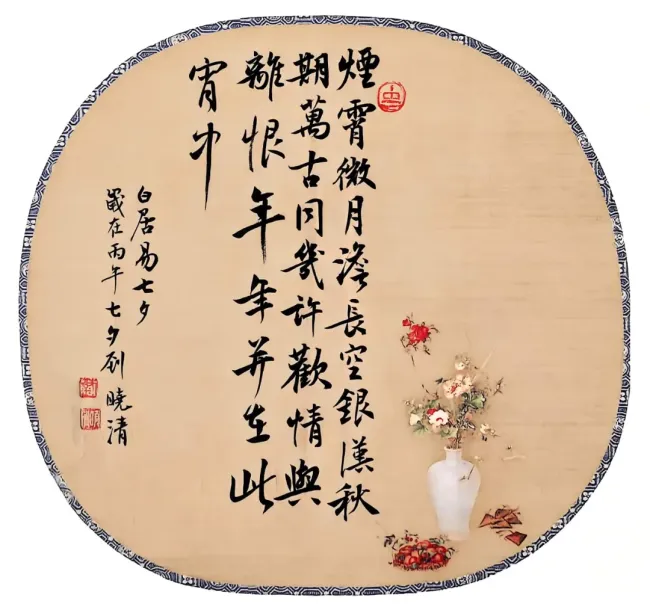 煙霄微月澹長空銀漢秋
期萬古同幾許歡情與
離恨年年并在此
宵中
白居易七夕
歲在丙午七夕刘曉清